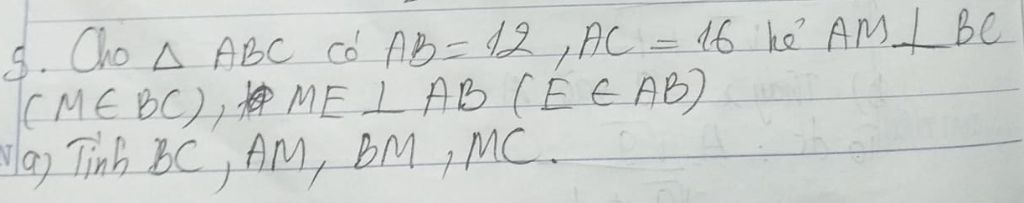 8. Cho △ ABC có AB = 12, AC = 16 kẻ AM ⊥ BC
(M ∈ BC), ME ⊥ AB (E ∈ AB)
a) Tính BC, AM, BM, MC.